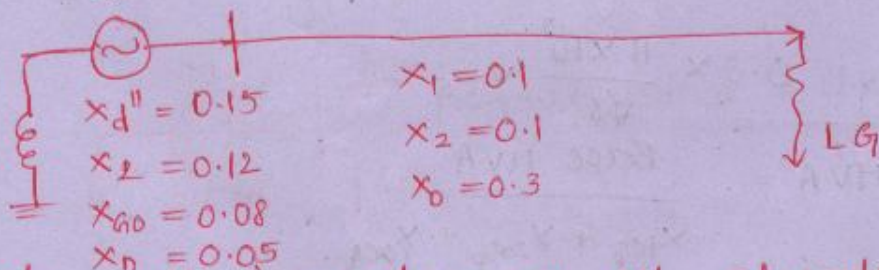 x_d" = 0.15
x_2 = 0.12
x_G0 = 0.08
x_n = 0.05
x_1 = 0.1
x_2 = 0.1
x_0 = 0.3
LG